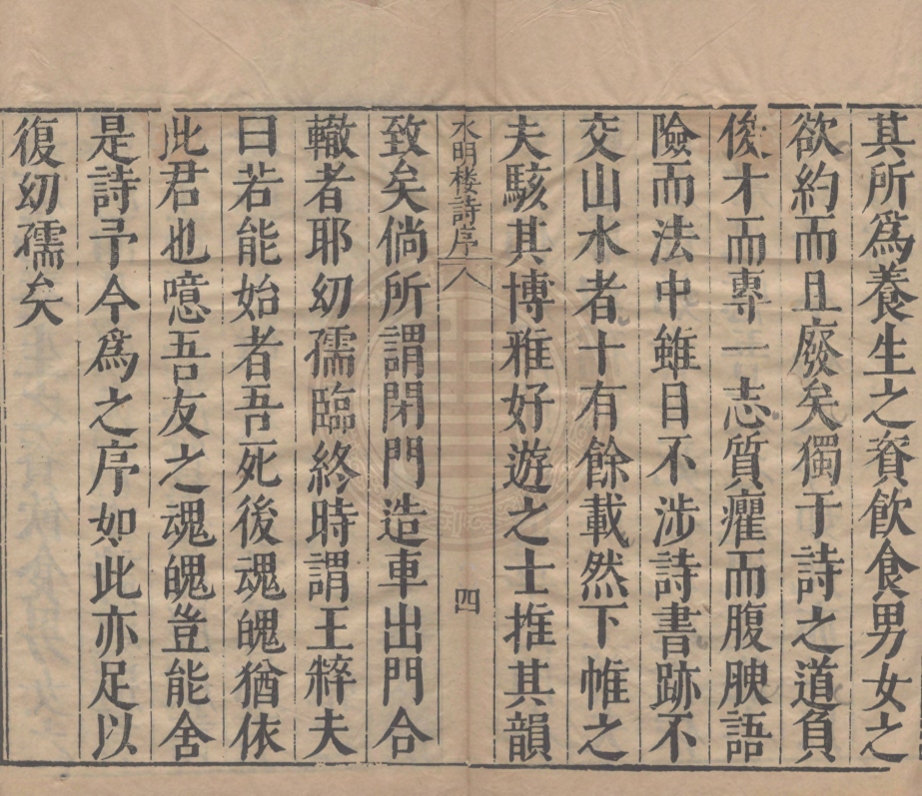 其所爲養生之資飲食男女之
欲約而且廢矣獨于詩之道負
俊才而專一志質癯而腹腴語
險而法中雖目不涉詩書跡不
交山水者十有餘載然下帷之
夫駭其博雅好遊之士推其韻
水明楼詩序 八 四
致矣倘所謂閉門造車出門合
轍者耶幼孺臨終時謂王粹夫
曰若能始者吾死後魂魄猶依
此君也噫吾友之魂魄豈能舍
是詩予今爲之序如此亦足以
復幼孺矣